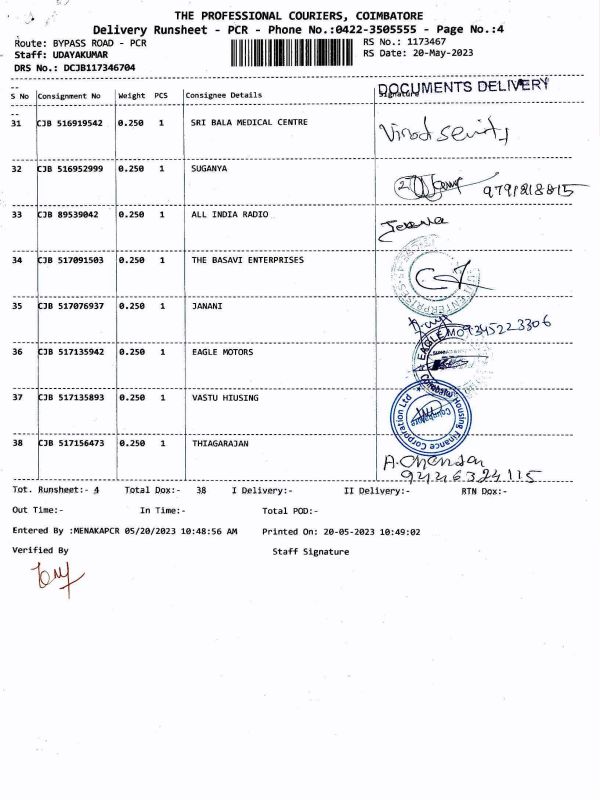 THE PROFESSIONAL COURIERS, COIMBATORE
Delivery Runsheet - PCR - Phone No.:0422-3505555 - Page No.:4
Route: BYPASS ROAD - PCR RS No.: 1173467
Staff: UDAYAKUMAR RS Date: 20-May-2023
DRS No.: DCJB117346704
DOCUMENTS DELIVERY
S No Consignment No Weight PCS Consignee Details Signature
31 CJB 516919542 0.250 1 SRI BALA MEDICAL CENTRE
32 CJB 516952999 0.250 1 SUGANYA
9791818815
33 CJB 89539042 0.250 1 ALL INDIA RADIO
34 CJB 517091503 0.250 1 THE BASAVI ENTERPRISES
35 CJB 517076937 0.250 1 JANANI
9345223306
36 CJB 517135942 0.250 1 EAGLE MOTORS
EAGLE MO
37 CJB 517135893 0.250 1 VASTU HIUSING
Housing Finance Corporation Ltd
38 CJB 517156473 0.250 1 THIAGARAJAN
Tot. Runsheet:- 4 Total Dox:- 38 I Delivery:- II Delivery:- RTN Dox:-
Out Time:- In Time:- Total POD:-
Entered By :MENAKAPCR 05/20/2023 10:48:56 AM Printed On: 20-05-2023 10:49:02
Verified By Staff Signature